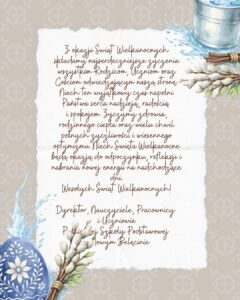 Z okazji Świąt Wielkanocnych
składamy najserdeczniejsze życzenia
wszystkim Rodzicom, Uczniom oraz
Gościom odwiedzającym naszą stronę.
Niech ten wyjątkowy czas napełni
Państwa serca nadzieją, radością
i spokojem. Życzymy zdrowia,
rodzinnego ciepła oraz wielu chwil
pełnych życzliwości i wiosennego
optymizmu. Niech Święta Wielkanocne
będą okazją do odpoczynku, refleksji i
nabrania nowej energii na nadchodzące
dni.
Wesołych Świąt Wielkanocnych!
Dyrektor, Nauczyciele, Pracownicy
i Uczniowie
Szkoły Podstawowej
Nowym Bełcinie